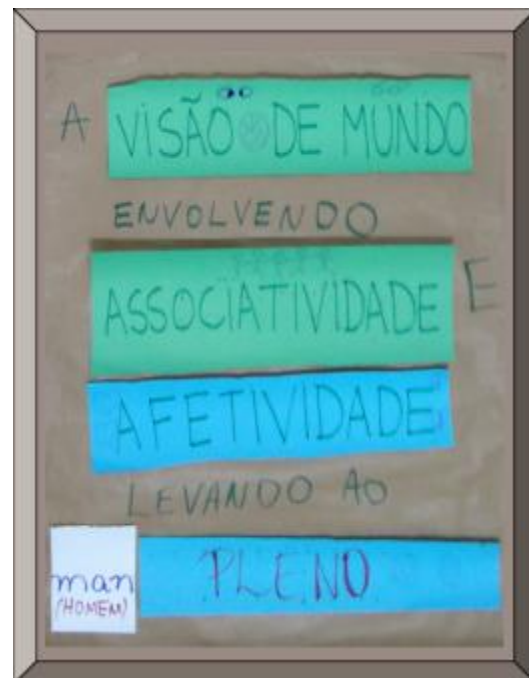 A VISÃO DE MUNDO
ENVOLVENDO
ASSOCIATIVIDADE E
AFETIVIDADE
LEVANDO AO
man PLENO
(HOMEM)